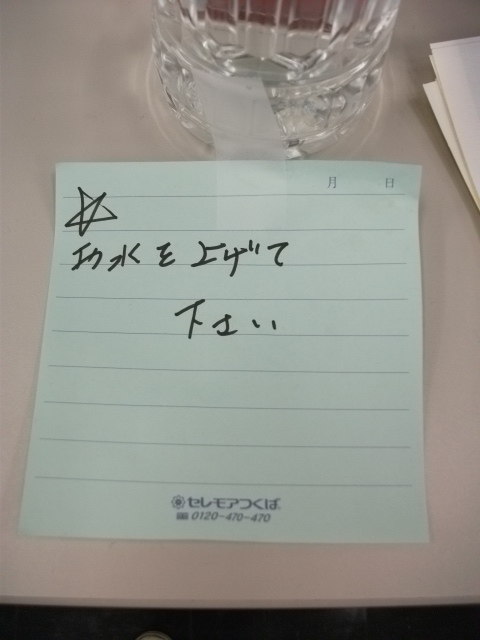 月 日
お水を上げて
下さい
セレモアつくば
0120-470-470